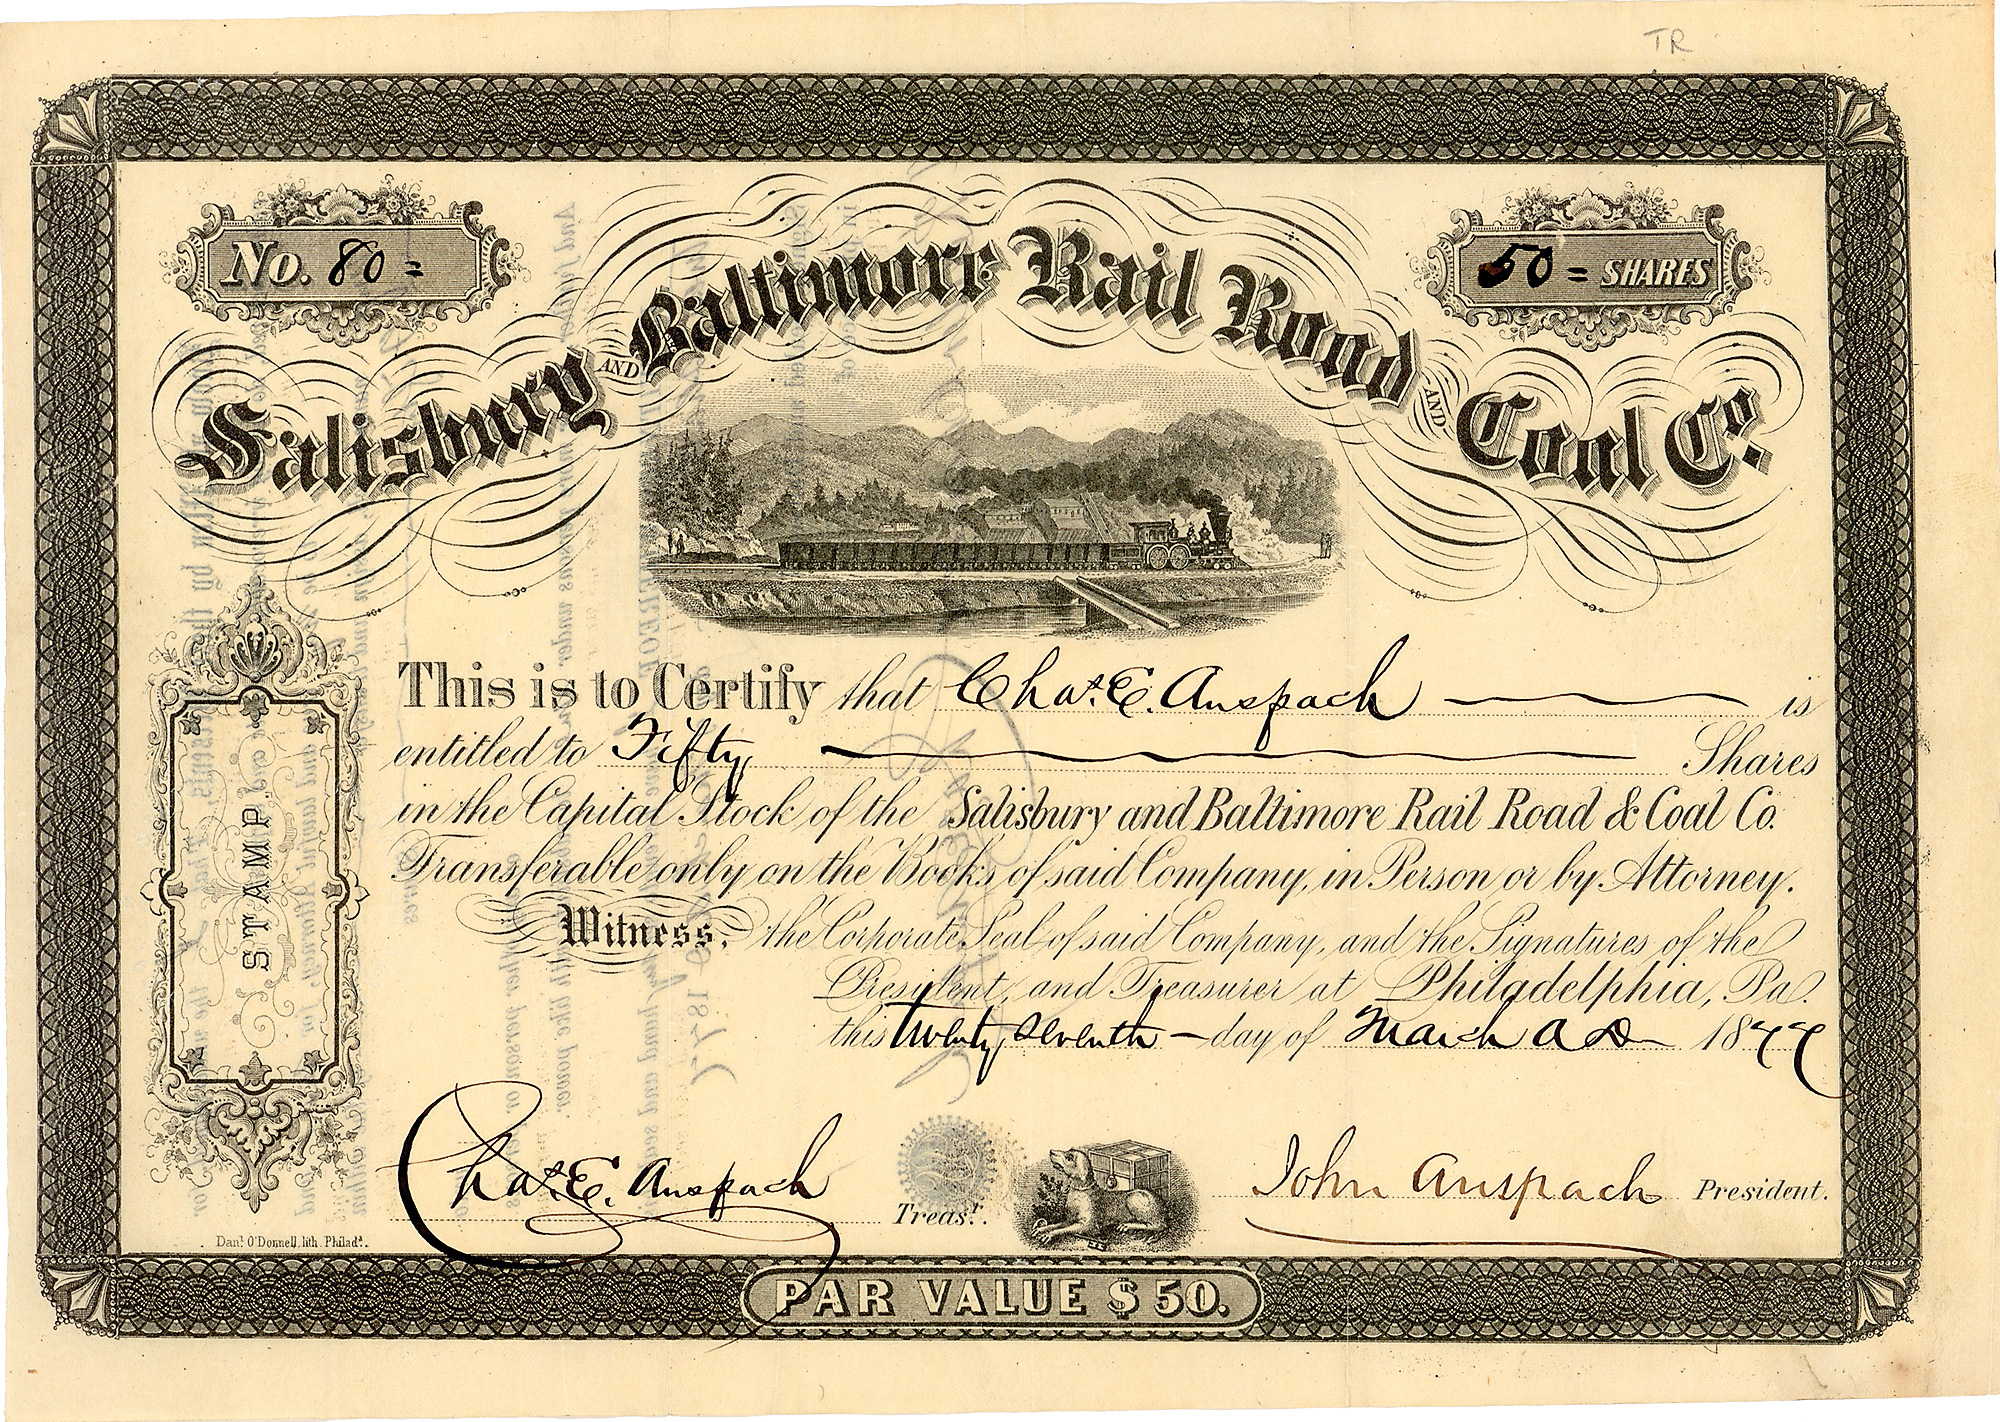 TR
No. 80 =
50 = SHARES
Salisbury AND Baltimore Rail Road AND Coal Co.
This is to Certify that Chas. E. Anspach is
entitled to Fifty Shares
in the Capital Stock of the Salisbury and Baltimore Rail Road & Coal Co.
Transferable only on the Books of said Company, in Person or by Attorney.
Witness, the Corporate Seal of said Company, and the Signatures of the
President, and Treasurer at Philadelphia, Pa.
this Twenty Seventh day of March A D 1877
STAMP
Chas. E. Anspach Treasr.
John Anspach President.
Danl. O'Donnell, lith. Philada.
PAR VALUE $50.